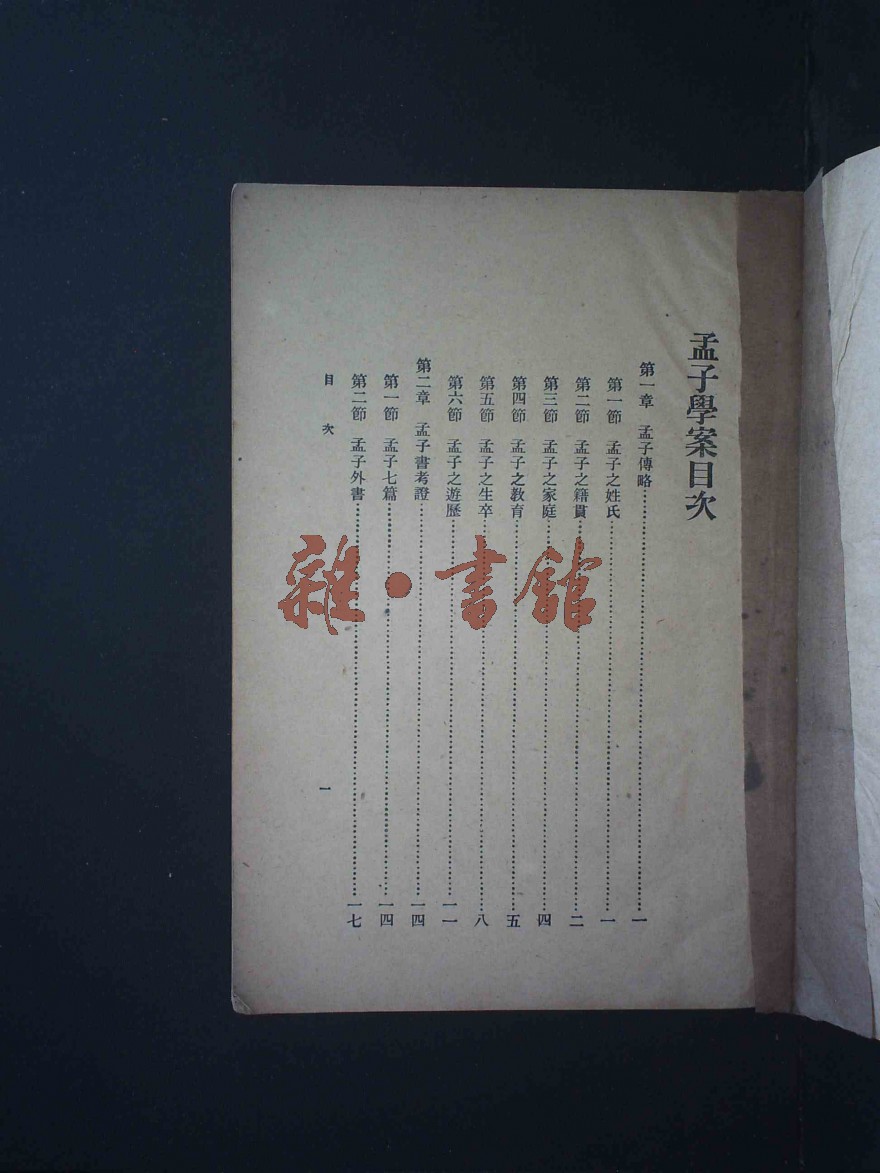 孟子學案目次
第一章　孟子傳略……一
第一節　孟子之姓氏……一
第二節　孟子之籍貫……二
第三節　孟子之家庭……四
第四節　孟子之教育……五
第五節　孟子之生卒……八
第六節　孟子之遊歷……一一
第二章　孟子書考證……一四
第一節　孟子七篇……一四
第二節　孟子外書……一七
目次　一
雜·書館